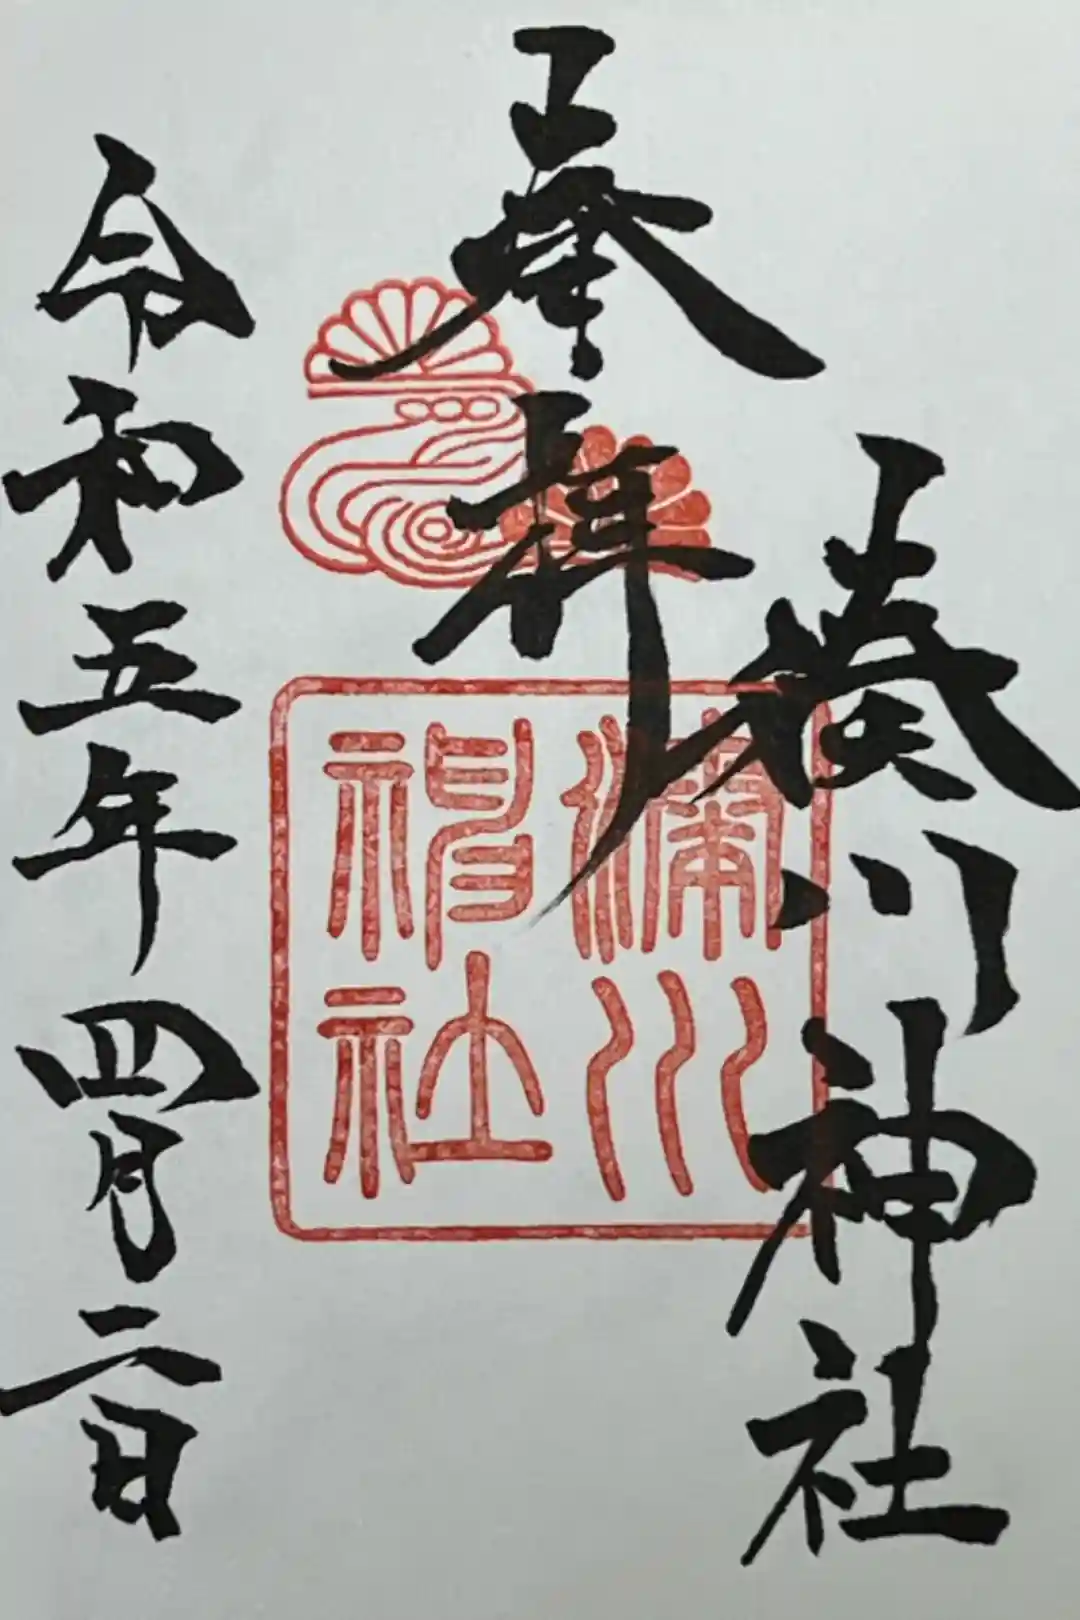 奉拝
湊川神社
湊川
神社
令和五年四月二日